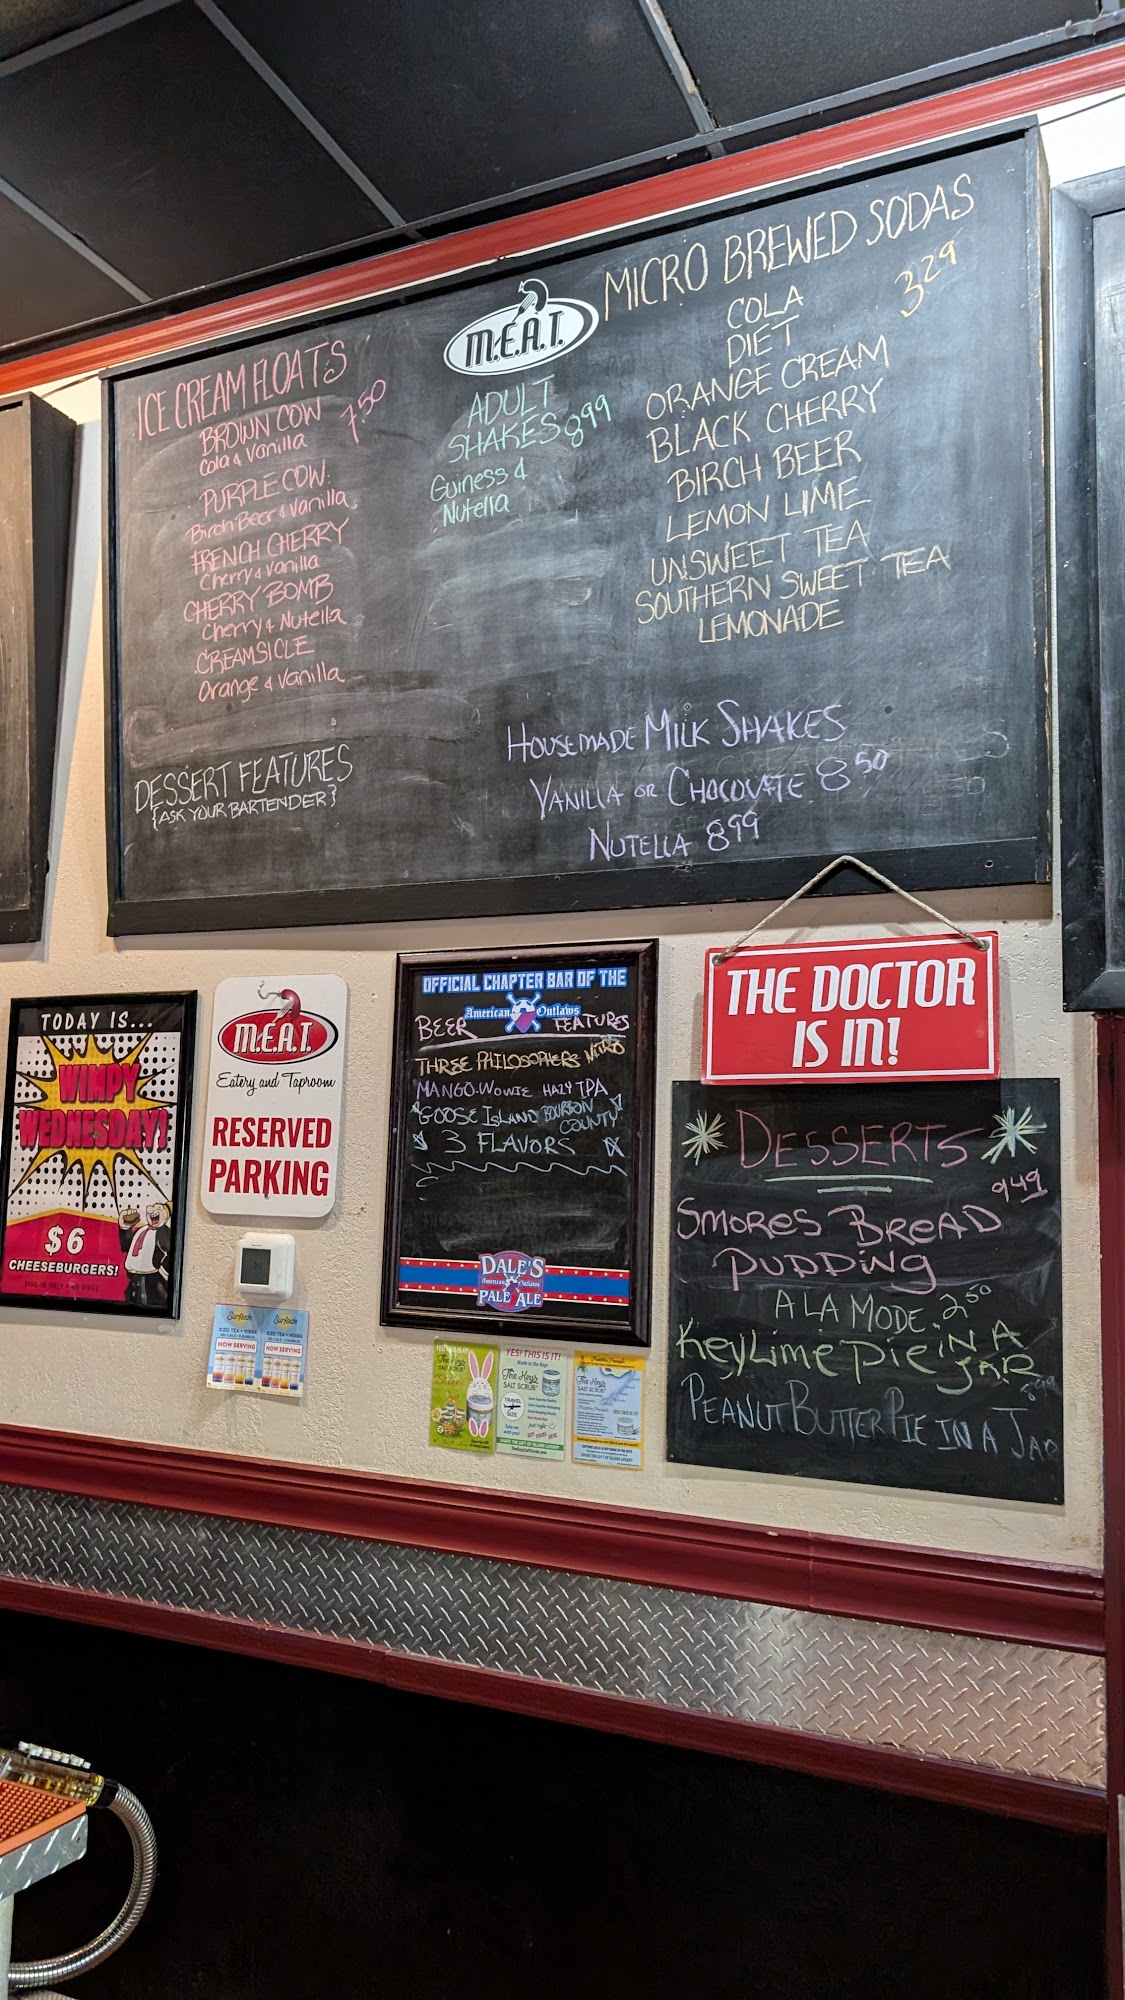 ICE CREAM FLOATS
7.50
BROWN COW
Cola & Vanilla
PURPLE COW
Birch Beer & Vanilla
FRENCH CHERRY
Cherry & Vanilla
CHERRY BOMB
Cherry & Nutella
CREAMSICLE
Orange & Vanilla
DESSERT FEATURES
{ASK YOUR BARTENDER}
M.E.A.T.
ADULT
SHAKES 8.99
Guiness &
Nutella
MICRO BREWED SODAS
3.29
COLA
DIET
ORANGE CREAM
BLACK CHERRY
BIRCH BEER
LEMON LIME
UNSWEET TEA
SOUTHERN SWEET TEA
LEMONADE
HOUSEMADE MILK SHAKES
VANILLA OR CHOCOLATE 8.50
NUTELLA 8.99
TODAY IS...
WIMPY
WEDNESDAY!
$6
CHEESEBURGERS!
M.E.A.T.
Eatery and Taproom
RESERVED
PARKING
Surfside Surfside
ICED TEA + VODKA ICED TEA + VODKA
NOW SERVING NOW SERVING
OFFICIAL CHAPTER BAR OF THE
American Outlaws
BEER FEATURES
THREE PHILOSOPHERS NITRO
MANGO-WOWIE HAZY IPA
GOOSE ISLAND BOURBON
COUNTY
3 FLAVORS
DALE'S
American Outlaws
PALE ALE
YES! THIS IS IT!
Made in the Keys
The Keys
SALT SCRUB
TRAVEL
SIZE
The Keys
SALT SCRUB
THE DOCTOR
IS IN!
DESSERTS
9.49
SMORES BREAD
PUDDING
A LA MODE 2.50
KeyLime Pie iN A
JAR
8.99
PEANUT BUTTER PIE IN A JAR